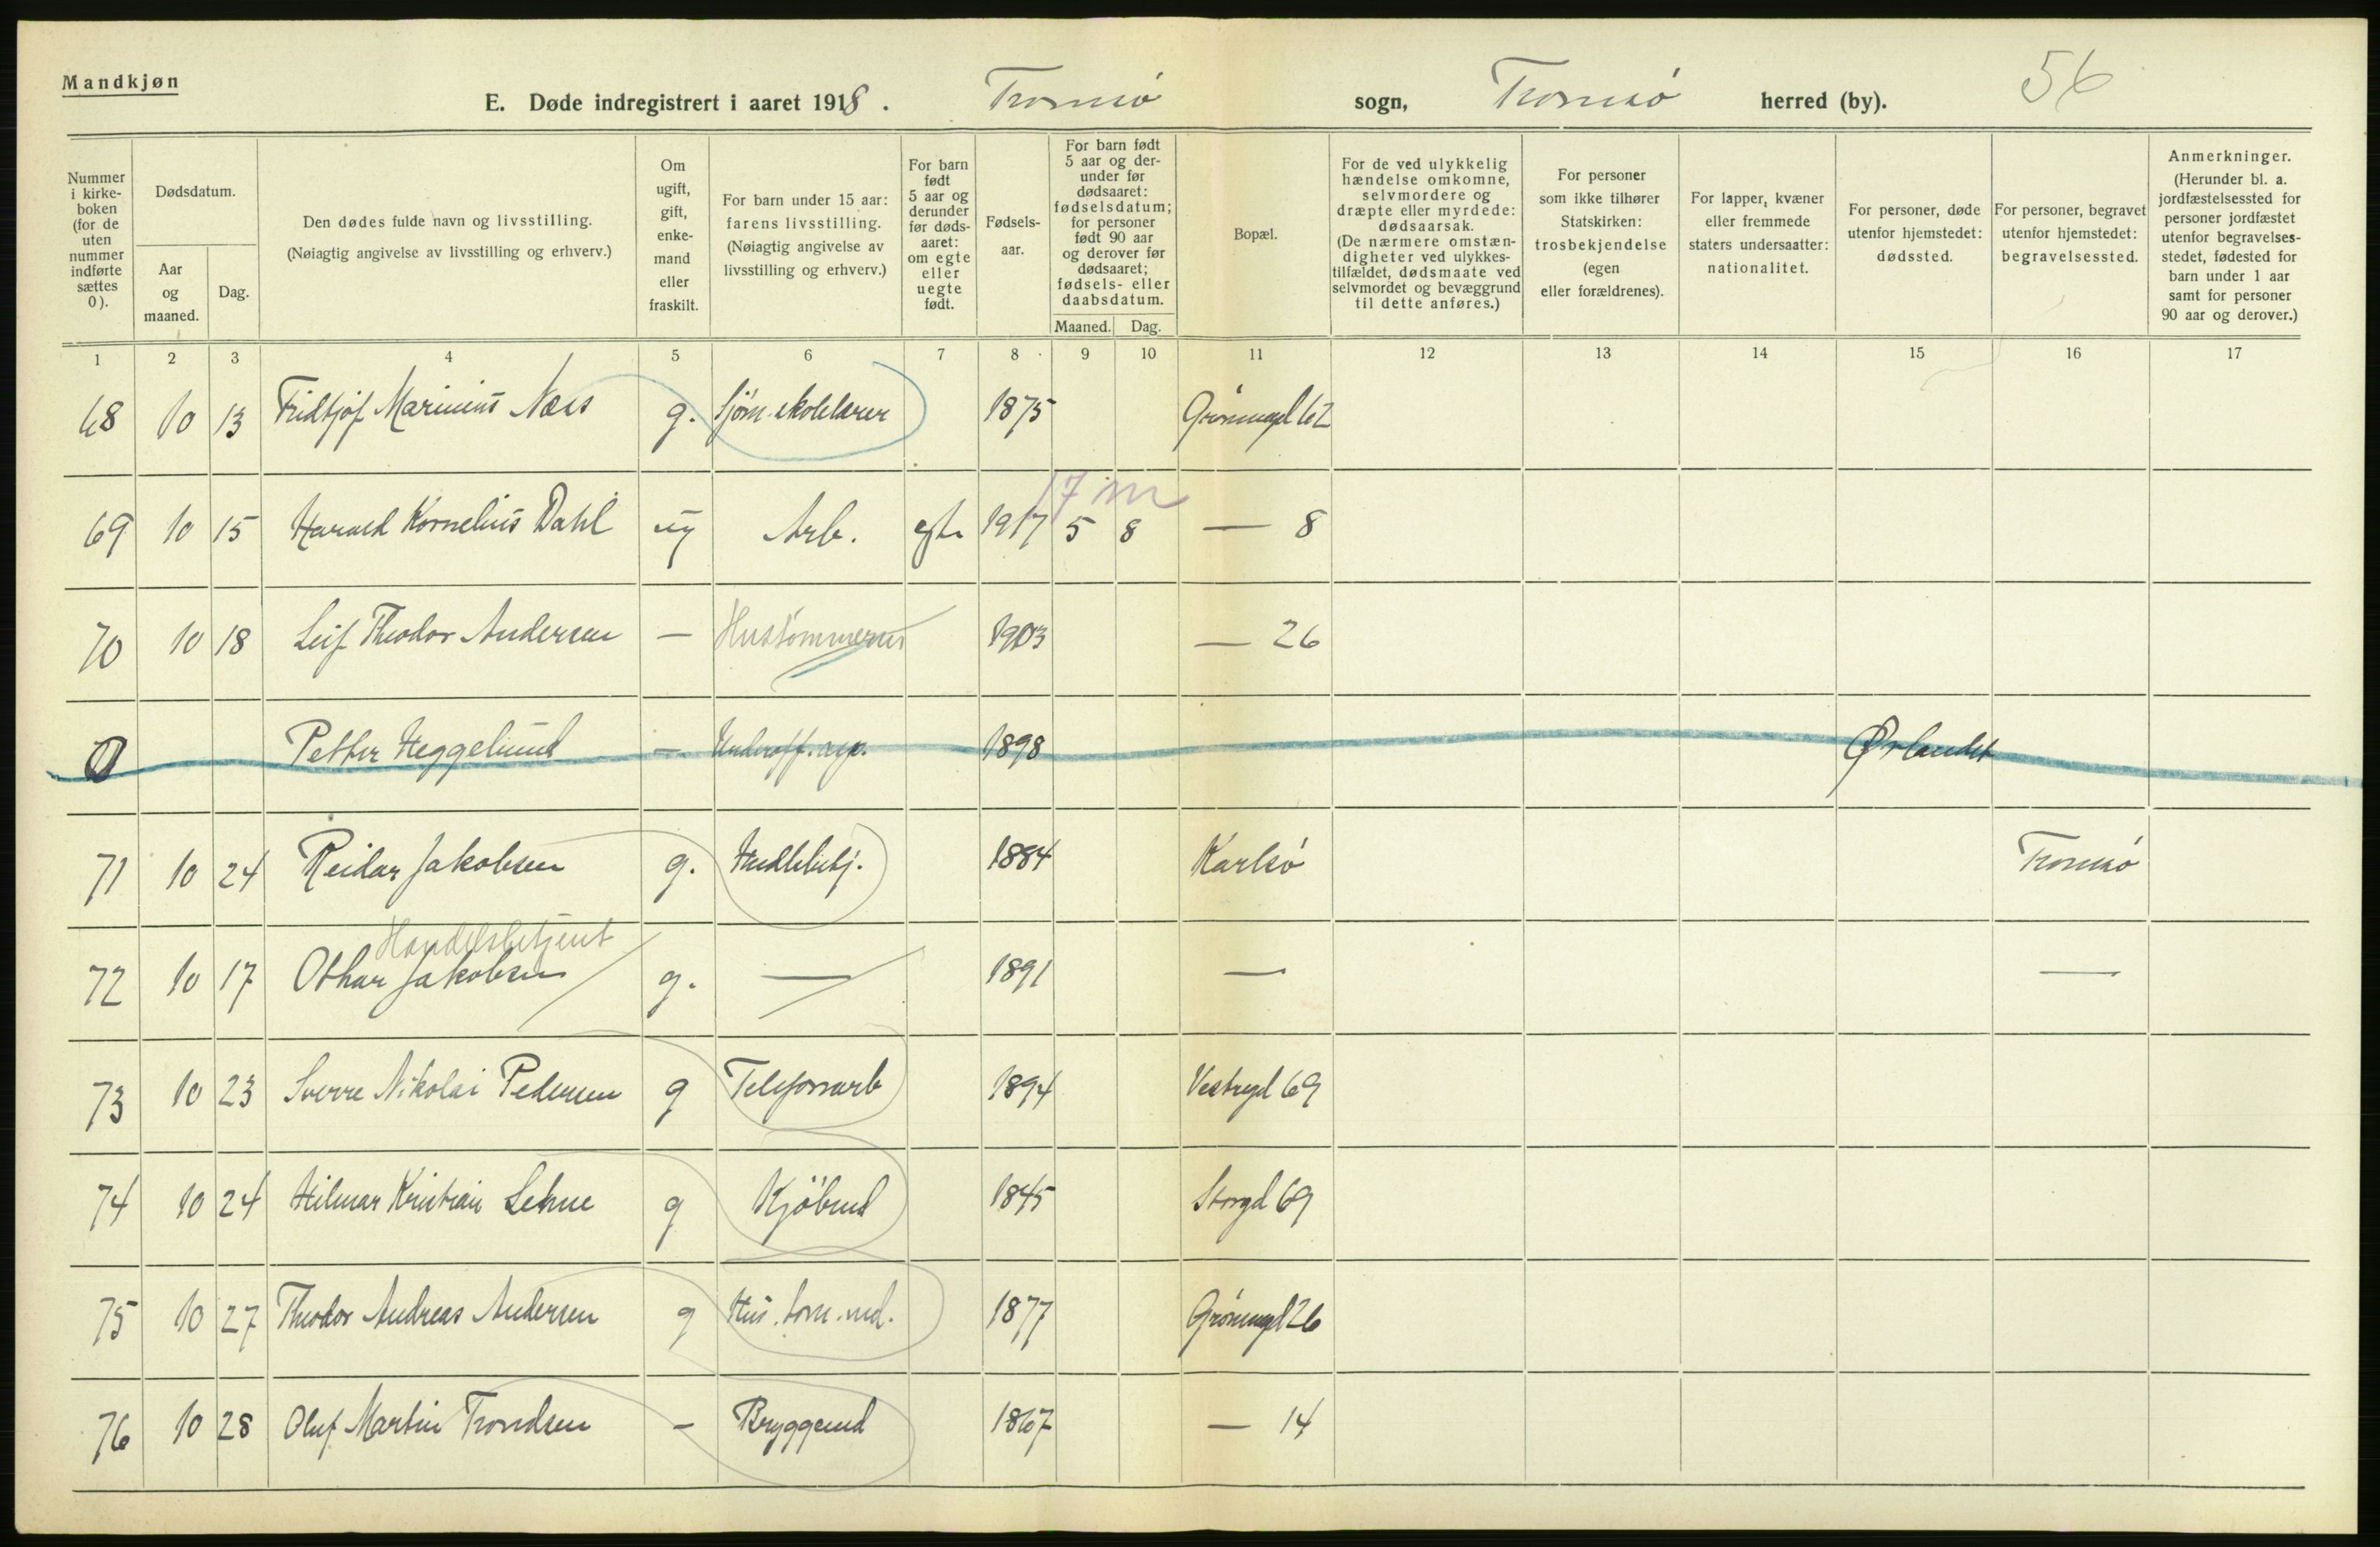 Mandkjøn
E. Døde indregistrert i aaret 1918. Tromsø sogn, Tromsø herred (by). 56
Nummer i kirkeboken (for de uten nummer indførte sættes 0).
Dødsdatum.
Aar og maaned.
Dag.
Den dødes fulde navn og livsstilling.
(Nøiagtig angivelse av livsstilling og erhverv.)
Om ugift, gift, enkemand eller fraskilt.
For barn under 15 aar: farens livsstilling.
(Nøiagtig angivelse av livsstilling og erhverv.)
For barn født 5 aar og derunder før dødsaaret: om egte eller uegte født.
Fødselsaar.
For barn født 5 aar og derunder før dødsaaret: fødselsdatum; for personer født 90 aar og derover før dødsaaret; fødsels- eller daabsdatum.
Maaned. Dag.
Bopæl.
For de ved ulykkelig hændelse omkomne, selvmordere og dræpte eller myrdede: dødsaarsak. (De nærmere omstændigheter ved ulykkestilfældet, dødsmaate ved selvmordet og bevæggrund til dette anføres.)
For personer som ikke tilhører Statskirken: trosbekjendelse (egen eller forældrenes).
For lapper, kvæner eller fremmede staters undersaatter: nationalitet.
For personer, døde utenfor hjemstedet: dødssted.
For personer, begravet utenfor hjemstedet: begravelsessted.
Anmerkninger. (Herunder bl. a. jordfæstelsessted for personer jordfæstet utenfor begravelsesstedet, fødested for barn under 1 aar samt for personer 90 aar og derover.)
1 2 3 4 5 6 7 8 9 10 11 12 13 14 15 16 17
68 10 13 Fridtjof Marinius Næss g. Sjøm.skolelærer 1875 Grønnegd 62
17 m
69 10 15 Harald Kornelius Dahl ug Arb. egte 1917 5 8 — 8
70 10 18 Leif Theodor Andersen — Hustømmerm 1903 — 26
0 Petter Heggelund — Underoff.asp. 1898 Ørlandet
71 10 24 Reidar Jakobsen g. Handlsbetj. 1884 Karlsø Tromsø
Handelsbetjent
72 10 17 Othar Jakobsen g. — 1891 — —
73 10 23 Sverre Nikolai Pedersen g Telefonarb 1894 Vestregd 69
74 10 24 Hilmar Kristian Lehne g Kjöbmd 1845 Storgd 69
75 10 27 Theodor Andreas Andersen g Hus.tøm.md. 1877 Grønnegd 26
76 10 28 Oluf Martin Trondsen — Bryggemd 1867 — 14